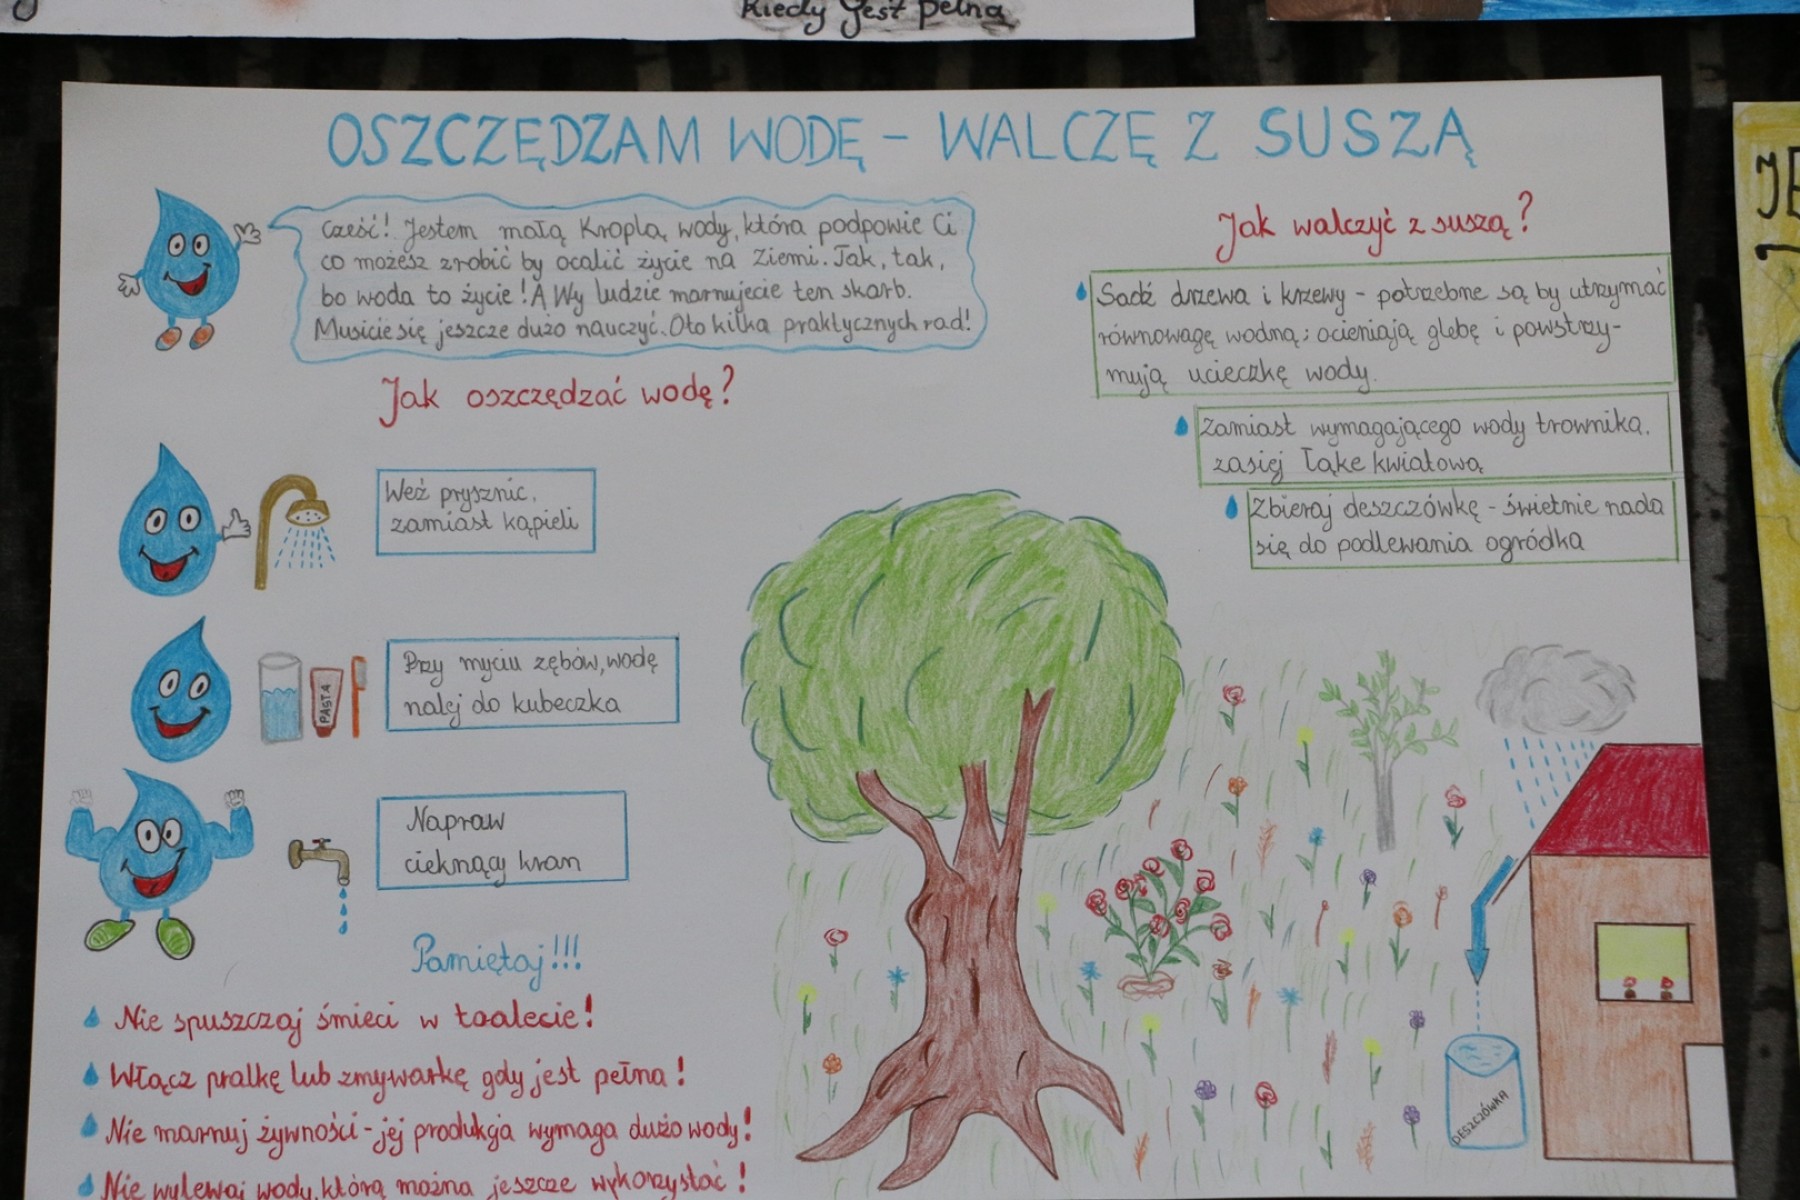 Kiedy jest pełna
OSZCZĘDZAM WODĘ – WALCZĘ Z SUSZĄ
Cześć! Jestem małą Kroplą wody, która podpowie Ci
co możesz zrobić by ocalić życie na Ziemi. Tak, tak,
bo woda to życie! A Wy ludzie marnujecie ten skarb.
Musicie się jeszcze dużo nauczyć. Oto kilka praktycznych rad!
Jak oszczędzać wodę?
Weź prysznic,
zamiast kąpieli
Przy myciu zębów, wodę
nalej do kubeczka
PASTA
Napraw
cieknący kran
Pamiętaj!!!
Nie spuszczaj śmieci w toalecie!
Włącz pralkę lub zmywarkę gdy jest pełna!
Nie marnuj żywności - jej produkcja wymaga dużo wody!
Nie wylewaj wody, którą można jeszcze wykorzystać!
Jak walczyć z suszą?
Sadź drzewa i krzewy - potrzebne są by utrzymać
równowagę wodną; ocieniają glebę i powstrzy-
mują ucieczkę wody.
Zamiast wymagającego wody trawnika,
zasiej łąkę kwiatową
Zbieraj deszczówkę - świetnie nada
się do podlewania ogródka
DESZCZÓWKA